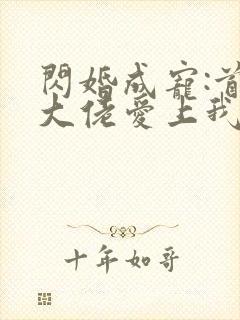 閃婚成寵:首
大佬愛上我
十年如哥